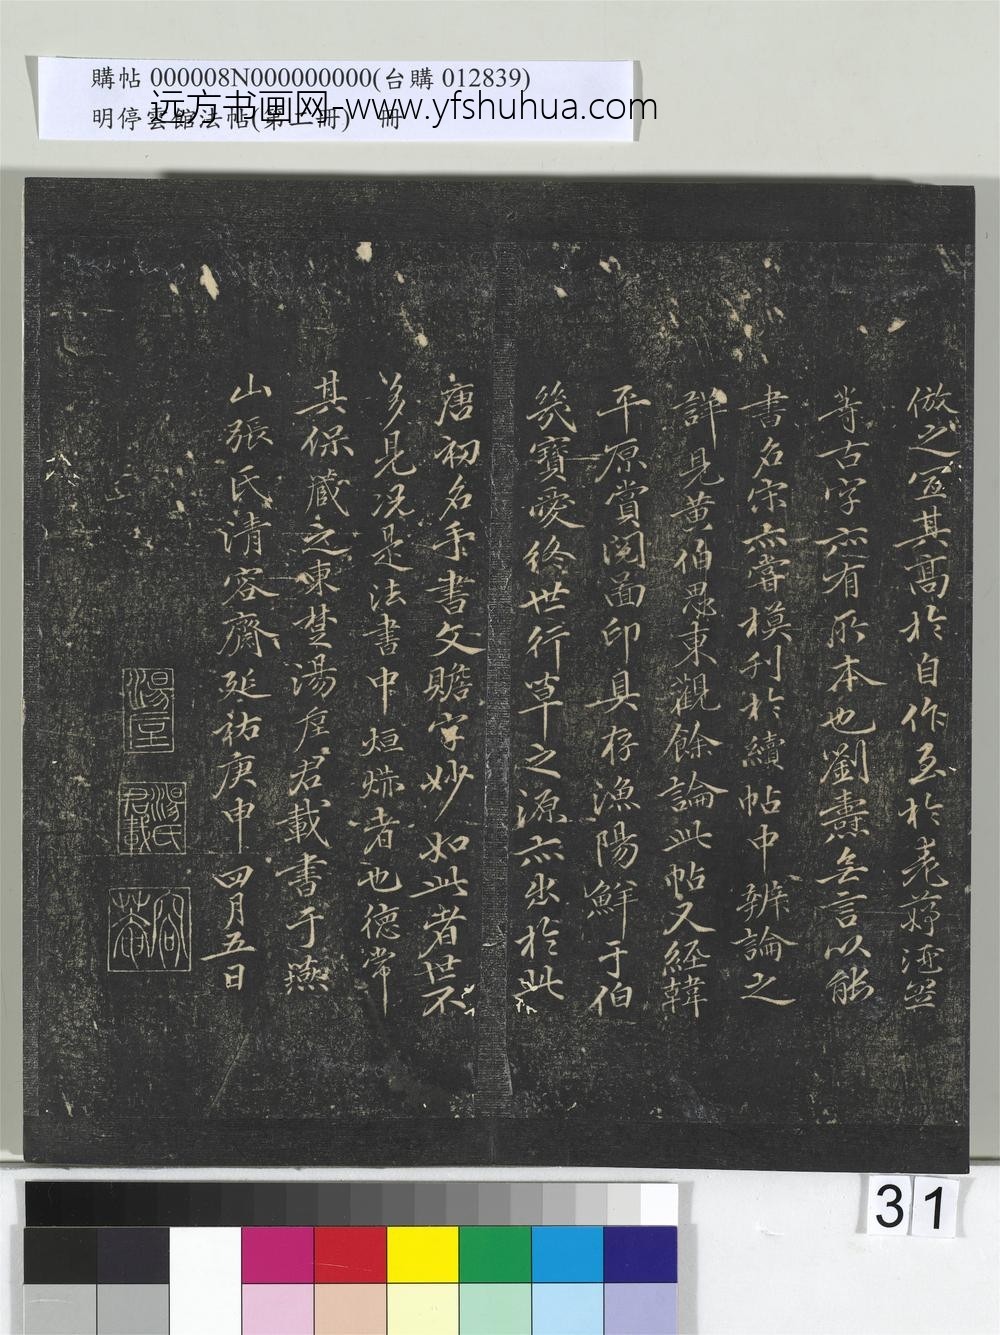 購帖 000008N000000000(台購 012839)
明停雲館法帖(第二冊) 冊
远方书画网-www.yfshuhua.com
倣之宜其高於自作至於老
等古字亦有所本也劉燾無言以能
書名宋亦嘗模刊於續帖中辨論之
詳見黃伯思東觀餘論此帖又經韓
平原賞閱圖印具存漁陽鮮于伯
幾寶愛終世行草之源亦出於此
唐初名手書文贍字妙如此者世不
多見況是法書中烜爀者也德常
其保藏之東楚湯垕君載書于燕
山張氏清容齋延祐庚申四月五日
湯垕
湯氏君載
31